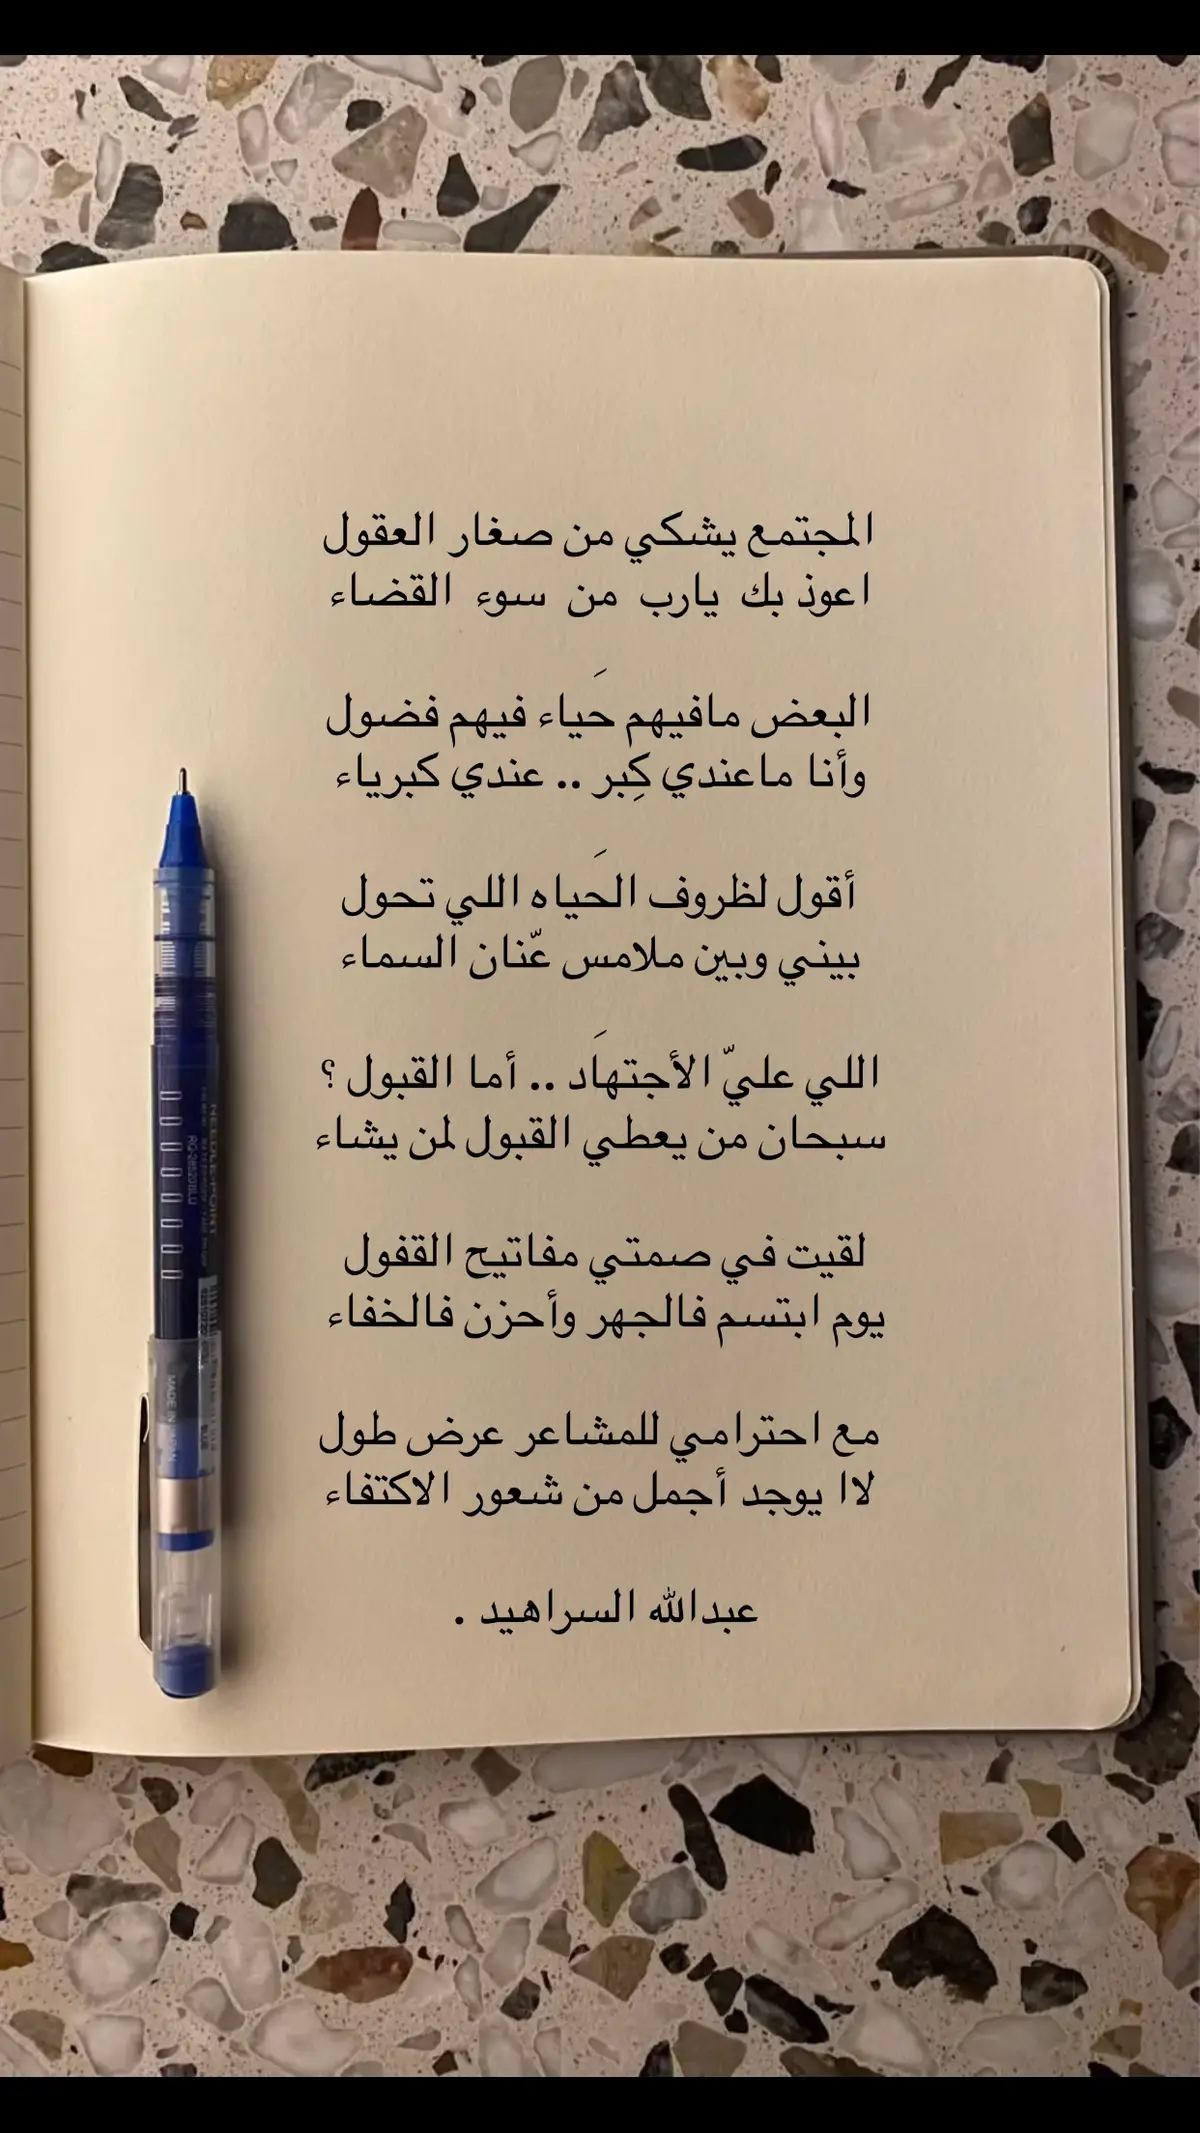 المجتمع يشكي من صغار العقول
اعوذ بك يارب من سوء القضاء
البعض مافيهم حَياء فيهم فضول
وأنا ماعندي كِبر .. عندي كبرياء
أقول لظروف الحَياه اللي تحول
بيني وبين ملامس عّنان السماء
اللي عليّ الأجتهاَد .. أما القبول ؟
سبحان من يعطي القبول لمن يشاء
لقيت في صمتي مفاتيح القفول
يوم ابتسم فالجهر وأحزن فالخفاء
مع احترامي للمشاعر عرض طول
لاا يوجد أجمل من شعور الاكتفاء
عبدالله السراهيد .
NEEDLE-POINT